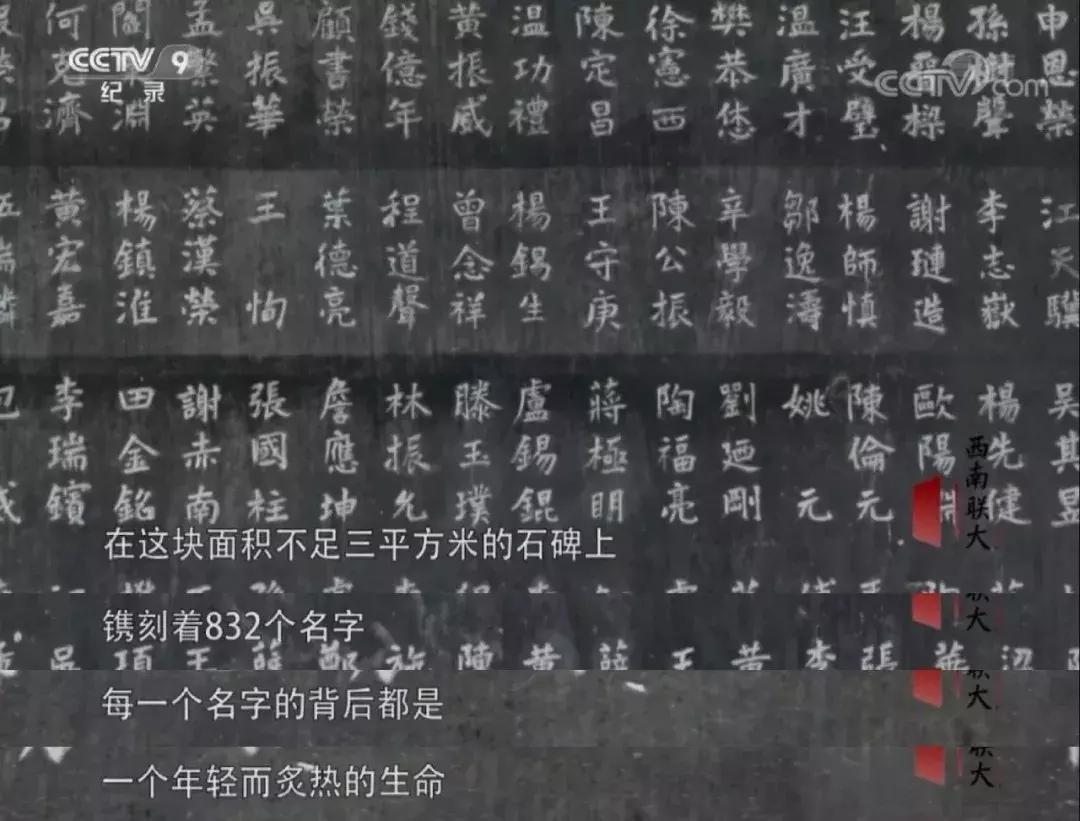 CCTV 9
纪录
CCTV.com
申恩榮
孫樹聲
汪受璧
溫廣才
樊恭烋
徐憲西
陳定昌
溫功禮
黃振威
錢億年
顧書榮
吳振華
孟繁英
何克濟
李志嶽
謝璉造
楊師慎
鄒逸濤
辛學毅
陳公振
王守庚
楊錫生
曾念祥
程道聲
葉德亮
王恂
蔡漢榮
楊鎮淮
黃宏嘉
吳其昱
楊先健
歐陽
陳倫元
姚元
劉廼剛
陶福亮
蔣極明
盧錫錕
滕玉璞
林振允
詹應坤
張國柱
謝赤南
田金銘
李瑞鑌
西南联大
在这块面积不足三平方米的石碑上
镌刻着832个名字
联大
每一个名字的背后都是
联大
一个年轻而炙热的生命
联大